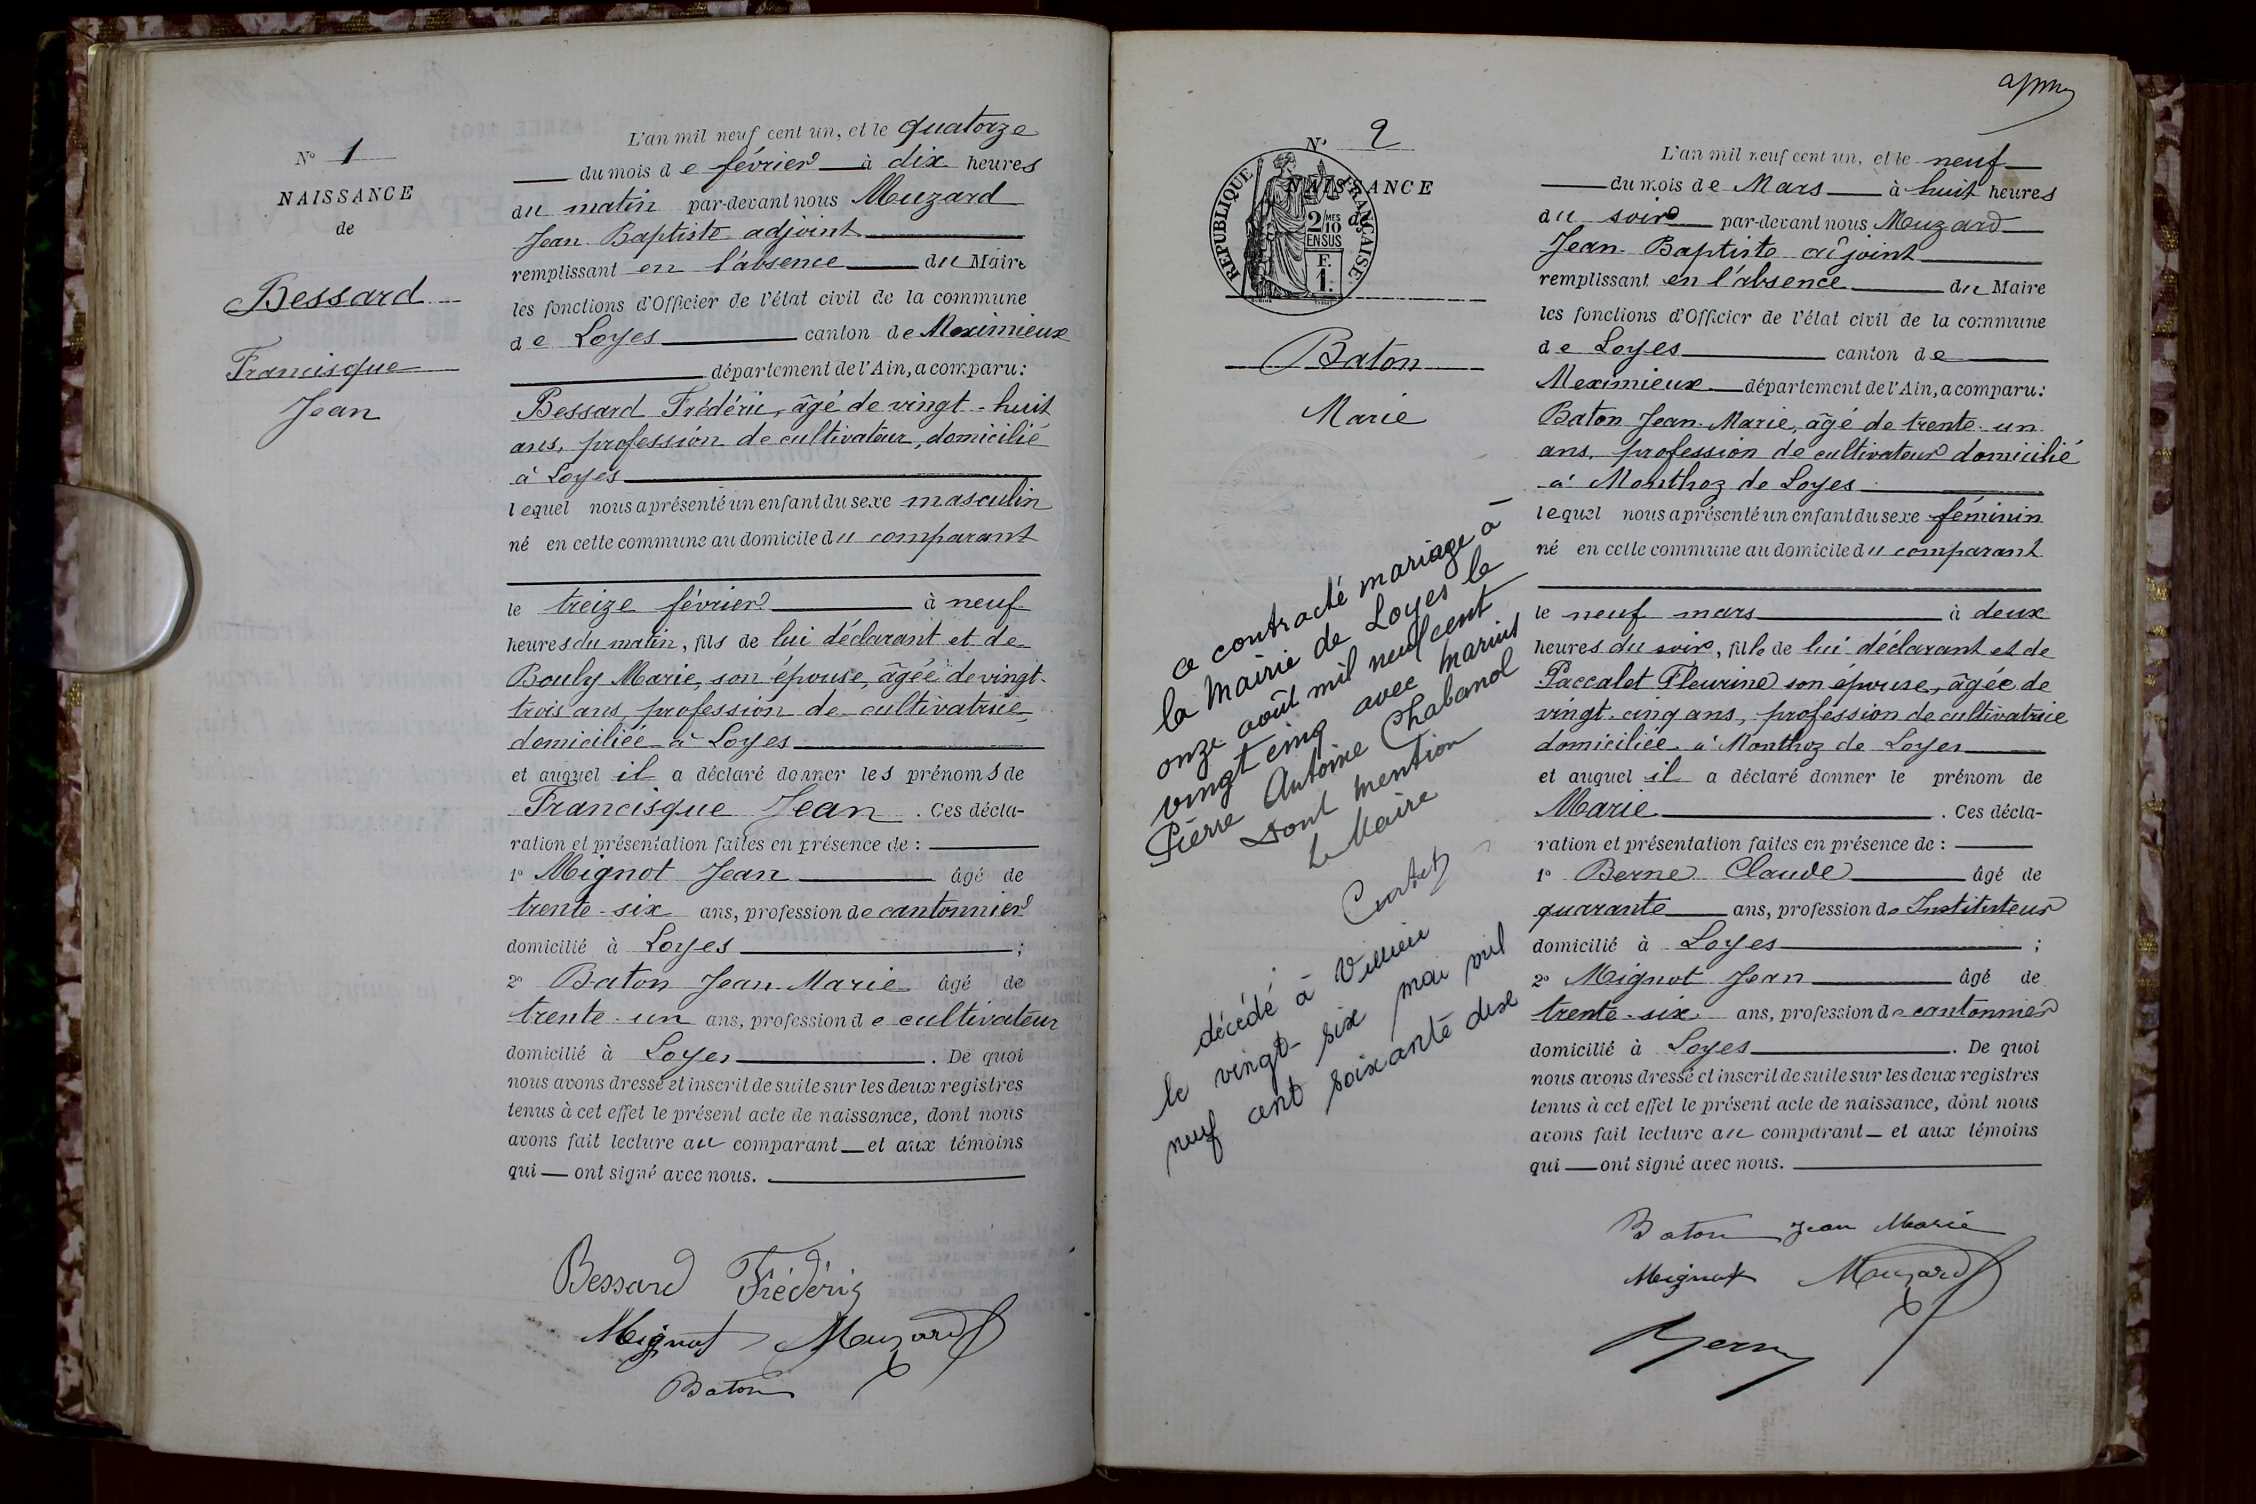 Nº 1
NAISSANCE
de
Bessard
Francisque
Jean
L'an mil neuf cent un, et le quatorze
du mois de février à dix heures
du matin par-devant nous Muzard
Jean-Baptiste adjoint
remplissant en l'absence du Maire
les fonctions d'Officier de l'état civil de la commune
de Loyes canton de Meximieux
département de l'Ain, a comparu:
Bessard Frédéric, âgé de vingt-huit
ans, profession de cultivateur, domicilié
à Loyes
lequel nous a présenté un enfant du sexe masculin
né en cette commune au domicile du comparant
le treize février à neuf
heures du matin, fils de lui déclarant et de
Bouly Marie, son épouse, âgée de vingt-
trois ans, profession de cultivatrice,
domiciliée à Loyes
et auquel il a déclaré donner les prénoms de
Francisque Jean. Ces décla-
ration et présentation faites en présence de :
1º Mignot Jean âgé de
trente-six ans, profession de cantonnier
domicilié à Loyes ;
2º Baton Jean-Marie âgé de
trente-un ans, profession de cultivateur
domicilié à Loyes. De quoi
nous avons dressé et inscrit de suite sur les deux registres
tenus à cet effet le présent acte de naissance, dont nous
avons fait lecture au comparant et aux témoins
qui ont signé avec nous.
Bessard Frédéric
Mignot Muzard
Baton
Nº 2
NAISSANCE
de
RÉPUBLIQUE FRANÇAISE
2 MES
10
EN SUS
F.
1.
Baton
Marie
a contracté mariage à
la Mairie de Loyes le
onze août mil neuf cent
vingt cinq avec Marius
Pierre Antoine Chabanol
Dont mention
Le Maire
décédé à Villieu
le vingt-six mai mil
neuf cent soixante dix
L'an mil neuf cent un, et le neuf
du mois de Mars à huit heures
du soir par-devant nous Muzard
Jean-Baptiste adjoint
remplissant en l'absence du Maire
les fonctions d'Officier de l'état civil de la commune
de Loyes canton de
Meximieux département de l'Ain, a comparu:
Baton Jean-Marie, âgé de trente-un
ans, profession de cultivateur domicilié
à Monthoz de Loyes
lequel nous a présenté un enfant du sexe féminin
né en cette commune au domicile du comparant
le neuf mars à deux
heures du soir, fille de lui déclarant et de
Paccalet Fleurine son épouse, âgée de
vingt-cinq ans, profession de cultivatrice
domiciliée à Monthoz de Loyes
et auquel il a déclaré donner le prénom de
Marie. Ces décla-
ration et présentation faites en présence de :
1º Berne Claude âgé de
quarante ans, profession de Instituteur
domicilié à Loyes ;
2º Mignot Jean âgé de
trente-six ans, profession de cantonnier
domicilié à Loyes. De quoi
nous avons dressé et inscrit de suite sur les deux registres
tenus à cet effet le présent acte de naissance, dont nous
avons fait lecture au comparant et aux témoins
qui ont signé avec nous.
Baton Jean Marie
Mignot Muzard